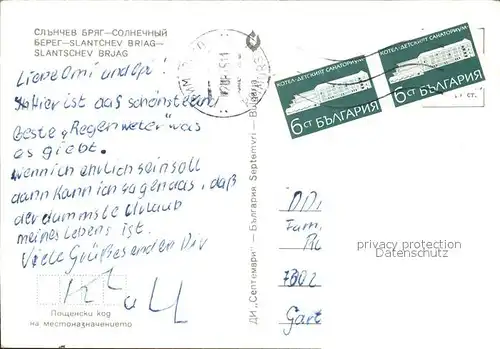 СЛЪНЧЕВ БРЯГ—СОЛНЕЧНЫЙ
БЕРЕГ—SLANTCHEV BRIAG—
SLANTSCHEV BRJAG
Liebe Omi und Opi!
Hier ist das schönste und
beste „Regenwetter" was
es giebt.
Wenn ich ehrlich sein soll
dann kann ich sagen das, daß
der dummste Urlaub
meines Lebens ist.
Viele Grüße senden Dir
Пощенски код
на местоназначението
ДИ „Септември" — България Septemvri — Bulgaria
КОТЕЛ-ДЕТСКИЯТ САНАТОРИУМ
6СТ БЪЛГАРИЯ
КОТЕЛ-ДЕТСКИЯТ САНАТОРИУМ
6СТ БЪЛГАРИЯ
СТ.
DD
Fam.
7302
Gart
privacy protection
Datenschutz